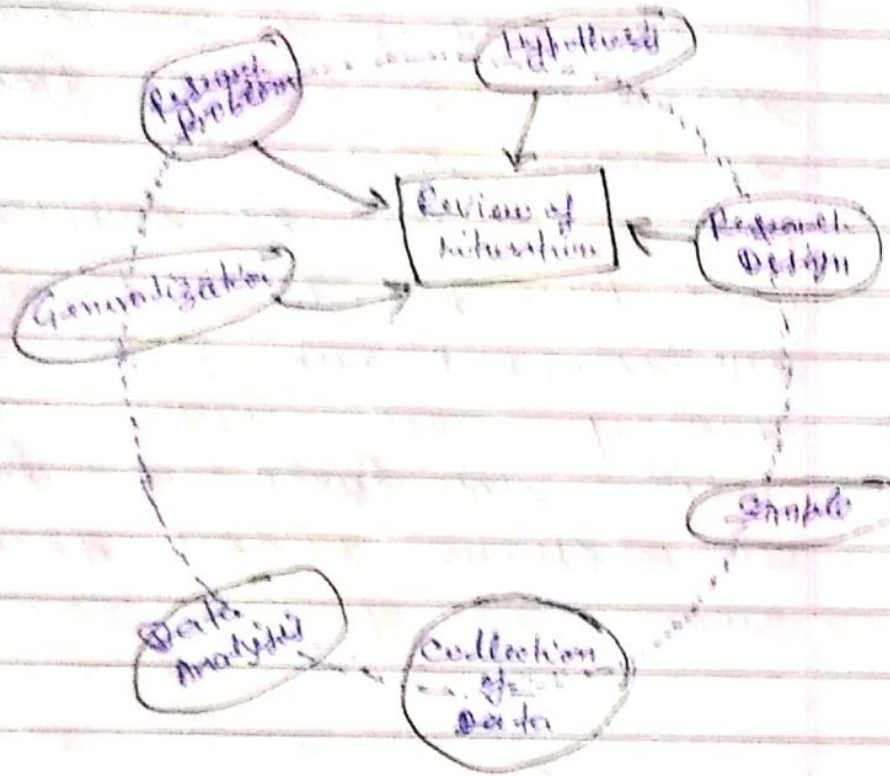 Hypothesis
Research
Problem
Review of
Literature
Research
Design
Generalization
Sample
Data
Analysis
Collection
of
Data